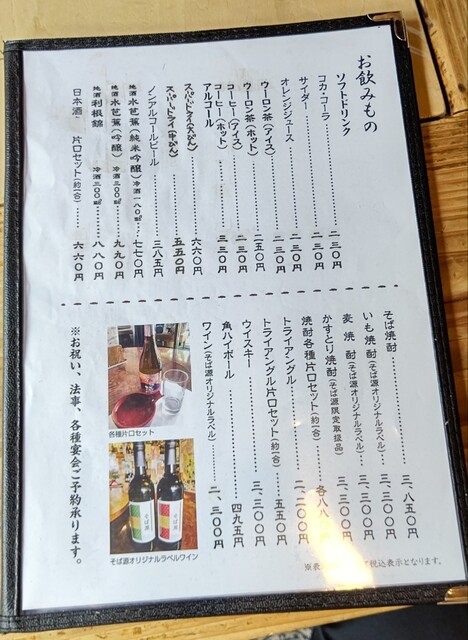 お飲みもの
ソフトドリンク
コカ・コーラ 二三〇円
サイダー 二三〇円
オレンジジュース 二三〇円
ウーロン茶(アイス) 二三〇円
ウーロン茶(ホット) 二五〇円
コーヒー(アイス) 三三〇円
コーヒー(ホット) 三三〇円
アルコール
スーパードライ(大びん) 六六〇円
スーパードライ(中びん) 五五〇円
ノンアルコールビール 三八五円
地酒 水芭蕉(純米吟醸) 冷酒一八〇㎖ 七七〇円
地酒 水芭蕉(吟醸) 冷酒三〇〇㎖ 九九〇円
地酒 利根錦 冷酒三〇〇㎖ 八八〇円
日本酒 片口セット(約一合) 六六〇円
そば焼酎 三、八五〇円
いも焼酎(そば源オリジナルラベル) 三、三〇〇円
麦焼酎(そば源オリジナルラベル) 三、三〇〇円
かすとり焼酎(そば源限定取扱品) 三、三〇〇円
焼酎各種片口セット(約一合) 各八八
トライアングル 二、二〇〇円
トライアングル片口セット(約一合) 五五〇円
ウイスキー 三、三〇〇円
角ハイボール 四九五円
ワイン(そば源オリジナルラベル) 二、三〇〇円
各種片口セット
そば源
そば源
そば源オリジナルラベルワイン
※お祝い、法事、各種宴会ご予約承ります。
※表 税込表示となります。